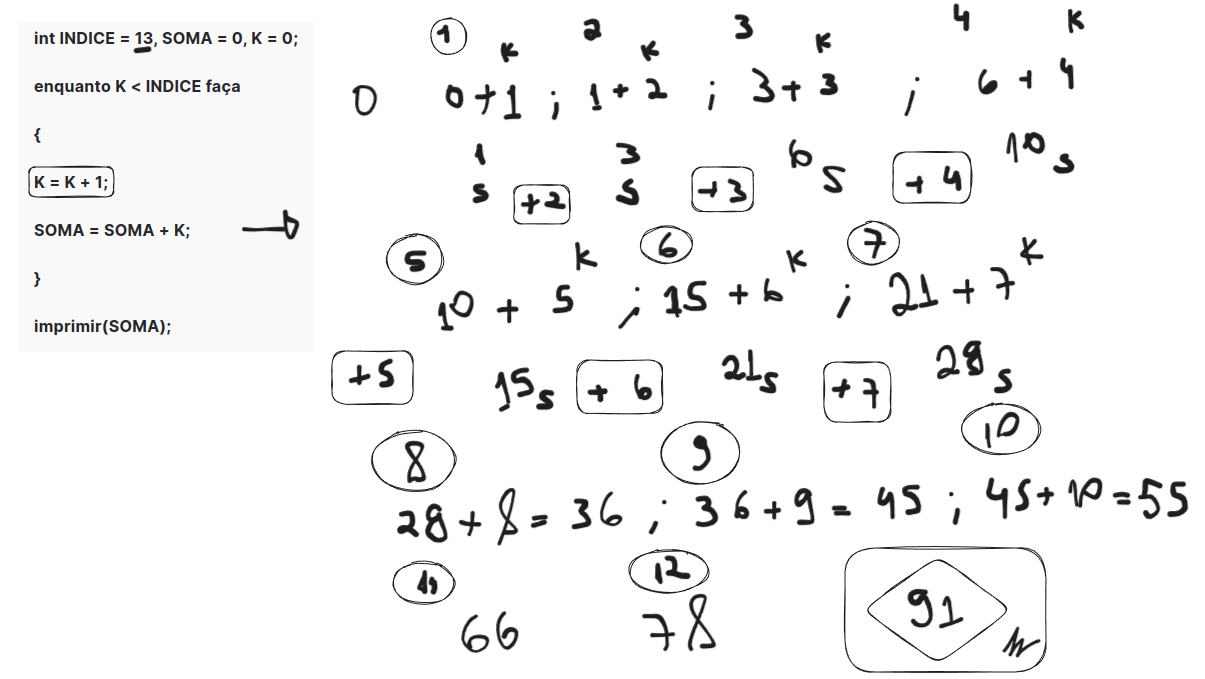 int INDICE = 13, SOMA = 0, K = 0;
enquanto K < INDICE faça
{
K = K + 1;
SOMA = SOMA + K;
}
imprimir(SOMA);
1 2 3 4 K
K K K
0 0+1 ; 1+2 ; 3+3 ; 6+4
1 3 6 s 10 s
s +2 s +3 +4
5 K 6 K 7 K
10 + 5 ; 15 + 6 ; 21 + 7
+5 15 s + 6 21 s +7 28 s
8 9 10
28 + 8 = 36 ; 36 + 9 = 45 ; 45+10=55
11 12
66 78 91